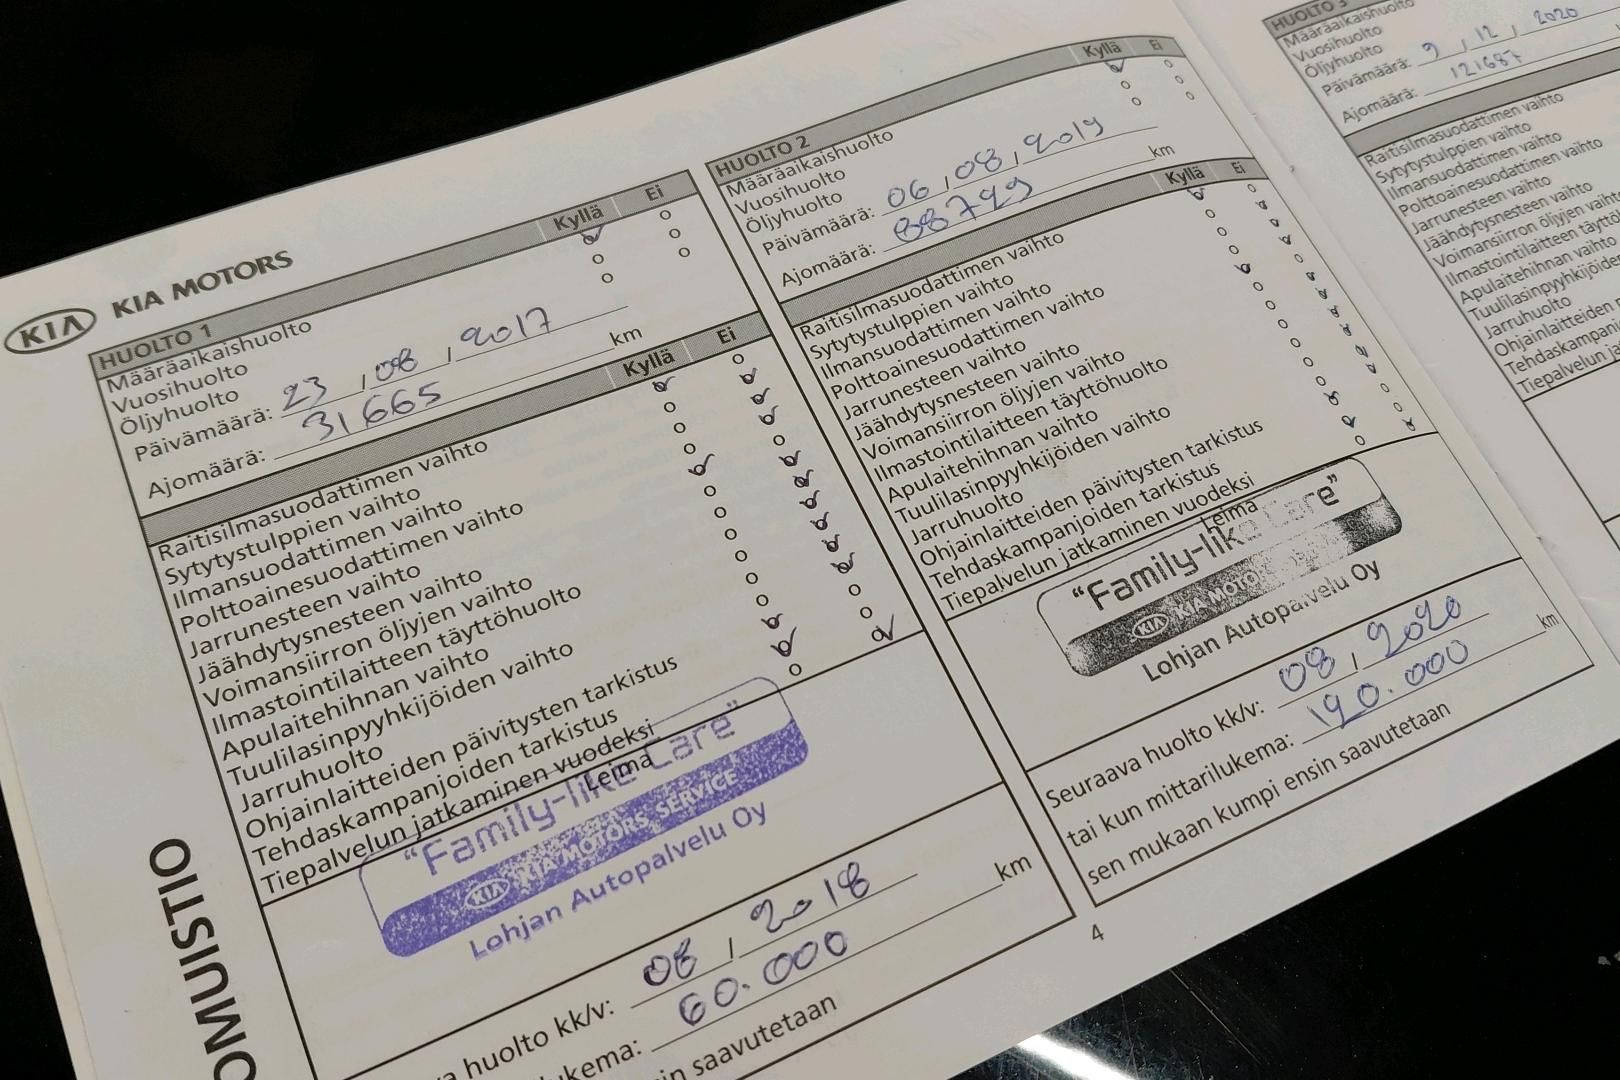 KIA KIA MOTORS
HUOLTO 1 Kyllä Ei
Määräaikaishuolto
Vuosihuolto
Öljyhuolto
Päivämäärä: 23 / 08 / 2017
Ajomäärä: 31665 km
Kyllä Ei
Raitisilmasuodattimen vaihto
Sytytystulppien vaihto
Ilmansuodattimen vaihto
Polttoainesuodattimen vaihto
Jarrunesteen vaihto
Jäähdytysnesteen vaihto
Voimansiirron öljyjen vaihto
Ilmastointilaitteen täyttöhuolto
Apulaitehihnan vaihto
Tuulilasinpyyhkijöiden vaihto
Jarruhuolto
Ohjainlaitteiden päivitysten tarkistus
Tehdaskampanjoiden tarkistus
Tiepalvelun jatkaminen vuodeksi
Leima
"Family-like Care"
KIA KIA MOTORS SERVICE
Lohjan Autopalvelu Oy
huolto kk/v: 08 / 2018
60.000 km
saavutetaan
HUOLTO 2 Kyllä Ei
Määräaikaishuolto
Vuosihuolto
Öljyhuolto
Päivämäärä: 06 / 08 / 2019
Ajomäärä: 88729 km
Kyllä Ei
Raitisilmasuodattimen vaihto
Sytytystulppien vaihto
Ilmansuodattimen vaihto
Polttoainesuodattimen vaihto
Jarrunesteen vaihto
Jäähdytysnesteen vaihto
Voimansiirron öljyjen vaihto
Ilmastointilaitteen täyttöhuolto
Apulaitehihnan vaihto
Tuulilasinpyyhkijöiden vaihto
Jarruhuolto
Ohjainlaitteiden päivitysten tarkistus
Tehdaskampanjoiden tarkistus
Tiepalvelun jatkaminen vuodeksi
Leima
"Family-like Care"
KIA KIA MOTOR
Lohjan Autopalvelu Oy
Seuraava huolto kk/v: 08 / 2020
tai kun mittarilukema: 120.000 km
sen mukaan kumpi ensin saavutetaan
4
HUOLTO 3
Määräaikaishuolto
Vuosihuolto
Öljyhuolto
Päivämäärä: 9 / 12 / 2020
Ajomäärä: 121687
Raitisilmasuodattimen vaihto
Sytytystulppien vaihto
Ilmansuodattimen vaihto
Polttoainesuodattimen vaihto
Jarrunesteen vaihto
Jäähdytysnesteen vaihto
Voimansiirron öljyjen vaihto
Ilmastointilaitteen
Apulaitehihnan vaihto
Tuulilasinpyyhkijöiden
Jarruhuolto
Ohjainlaitteiden
Tiepalvelun